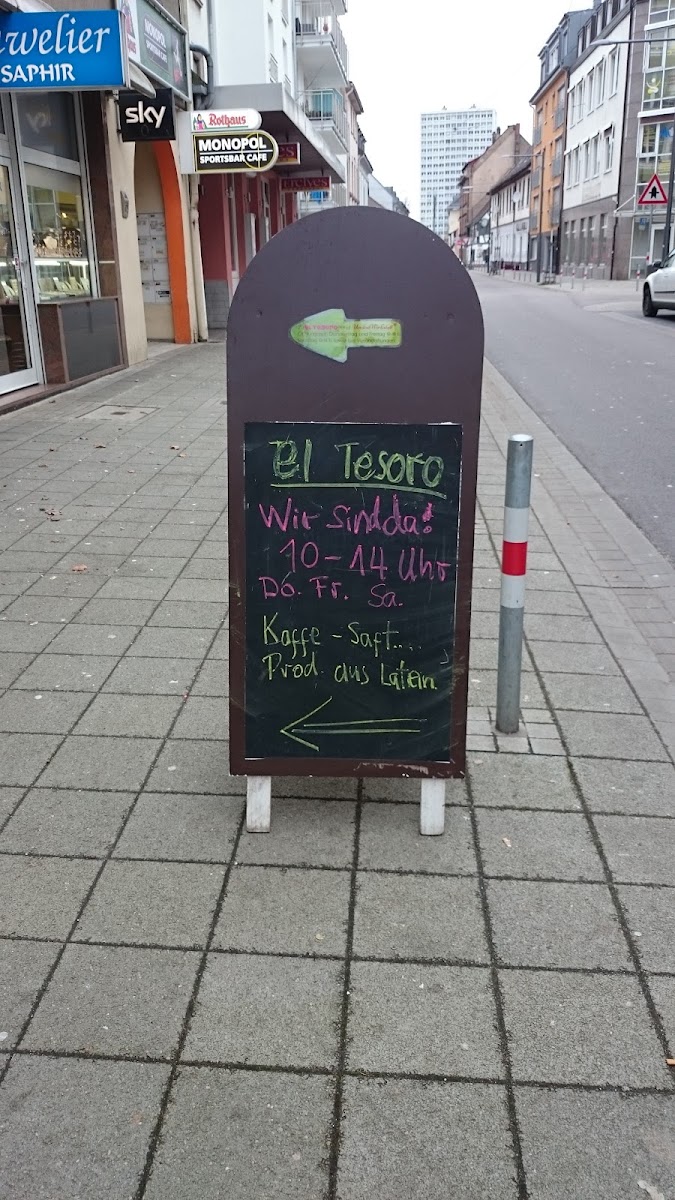 uwelier
SAPHIR
MONOPOL
SPORTSBAR
sky
Rothaus
MONOPOL
SPORTSBAR CAFE
El Tesoro
Wir sind da!
10-14 Uhr
Do. Fr. Sa.
Kaffe - Saft....
Prod. aus Latein